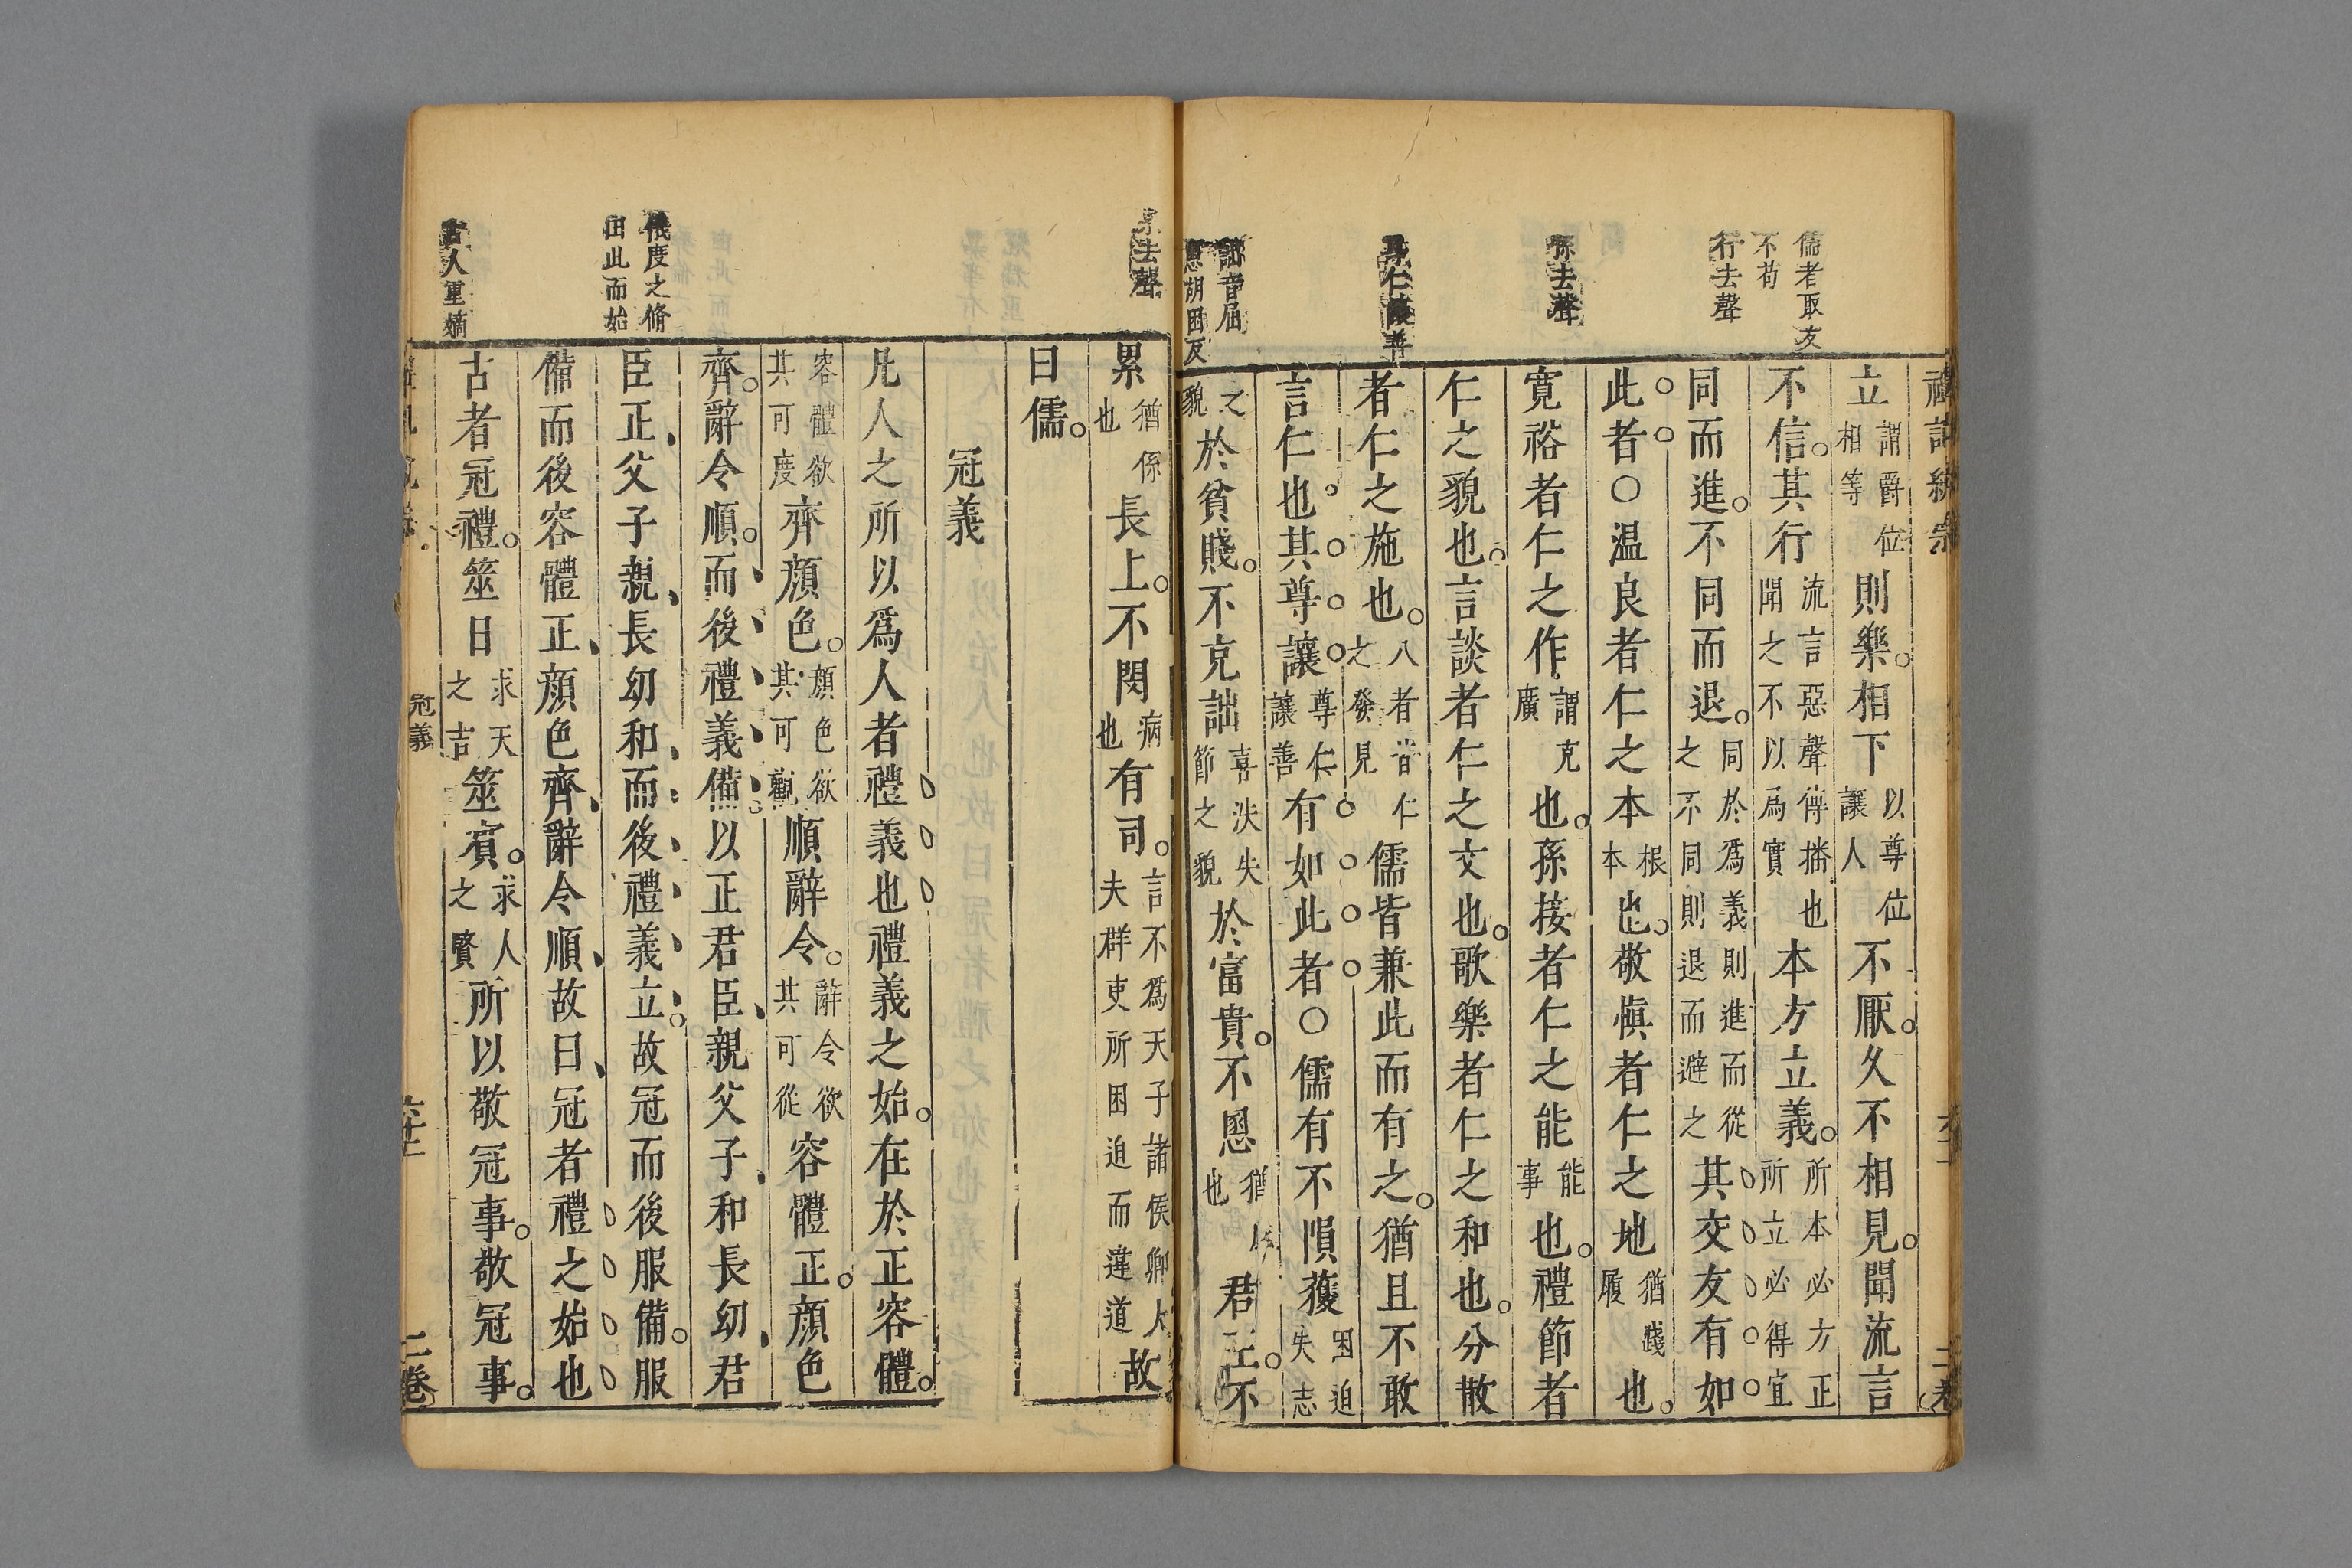 儒者取友
不苟
行去聲
孫去聲
詘音屈
慁胡困反
立謂爵位相等則樂。相下以尊位讓人不厭。久不相見。聞流言
不信。其行流言惡聲傳播也聞之不以爲實本方立義。所本必方正所立必得宜
同而進。不同而退。同於爲義則進而從之不同則退而避之其交友有如
此者○温良者仁之本根本也。敬愼者仁之地猶踐履也。
寛裕者仁之作謂克廣也。孫接者仁之能能事也。禮節者
仁之貌也。言談者仁之文也。歌樂者仁之和也。分散
者仁之施也。八者皆仁之發見儒皆兼此而有之。猶且不敢
言仁也。其尊讓尊仁讓善有如此者○儒有不隕獲困迫失志
之貌於貧賤。不充詘喜泆失節之貌於富貴。不慁猶也君王。不
累去聲
儀度之脩
由此而始
古人重嫡
累猶係也長上。不閔病也有司。言不爲天子諸侯卿大夫群吏所困迫而違道故
曰儒。
冠義
凡人之所以爲人者禮義也禮義之始。在於正容體。
容體欲其可度齊顔色。顔色欲其可觀順辭令。辭令欲其可從容體正。顔色
齊。辭令順。而後禮義備。以正君臣、親父子、和長幼、君
臣正、父子親、長幼和、而後禮義立。故冠而後服備。服
備而後容體正、顔色齊、辭令順、故曰、冠者禮之始也
古者冠禮。筮日求天之吉筮賓。求人之賢所以敬冠事。敬冠事。
冠義
二卷